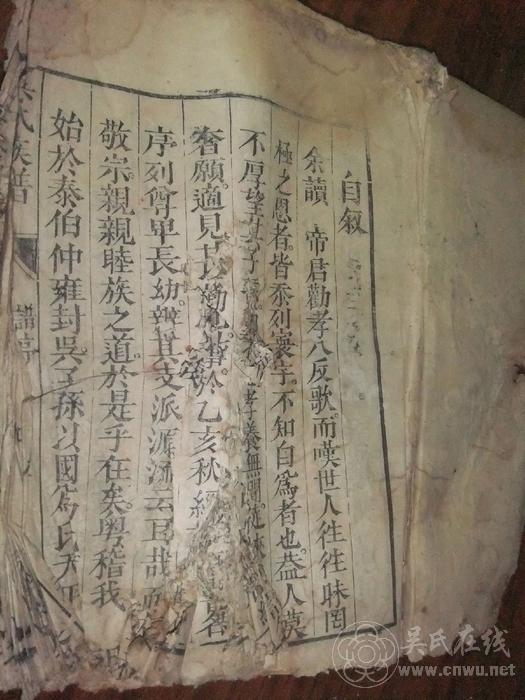 自叙
余讀　帝君勸孝八反歌而嘆世人徃徃昧罔
極之恩者皆忝列寰宇不知自爲者也葢人莫
不厚望其子 孝養無
奢願適見 於乙亥秋
序列尊卑長幼辨其支派源流云耳哉而
敬宗親親睦族之道於是乎在矣粤稽我
始於泰伯仲雍封吳子孫以國爲氏
吳氏族譜
譜序
吴氏在线
www.cnwu.net